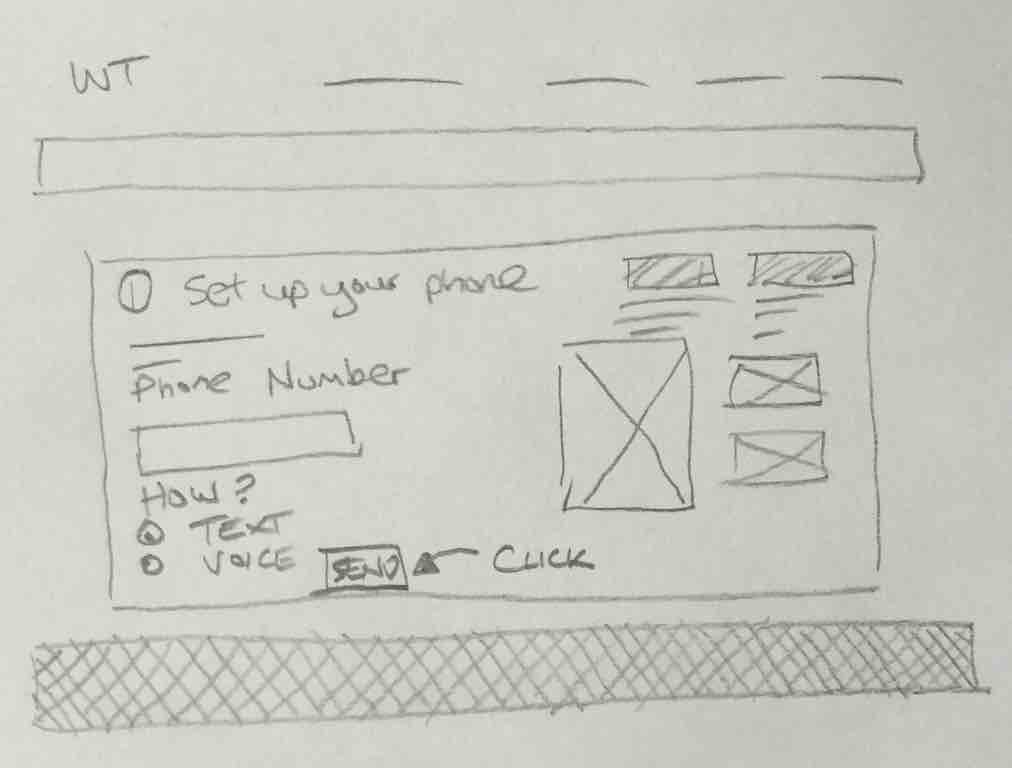 WT
① Set up your phone
Phone Number
How?
TEXT
VOICE
SEND
CLICK